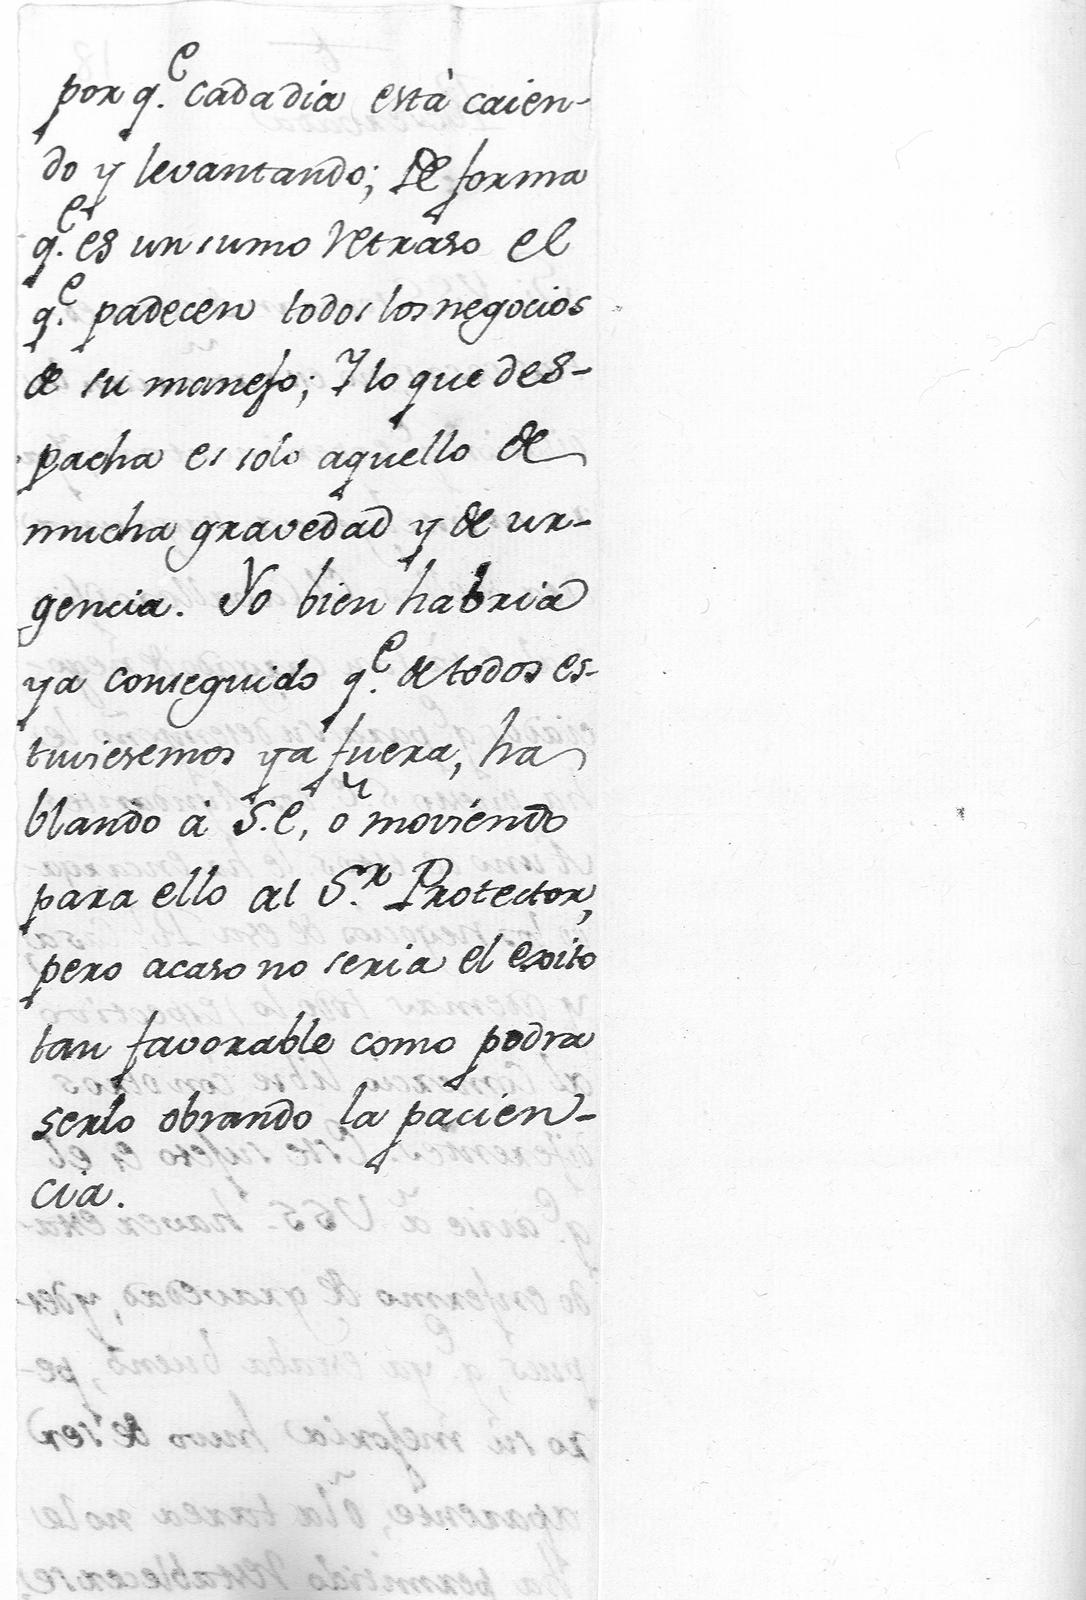 por q.e cada dia està caien-
do y levantando; De forma
q.e es un sumo retraso el
q.e padecen todos los negocios
de su manejo; Y lo que des-
pacha es solo aquello de
mucha gravedad y de ur-
gencia. Yo bien habria
ya conseguido q.e de todos es-
tuviesemos ya fuera, ha
blando à S.E, ò moviendo
para ello al S.r Protector,
pero acaso no seria el exito
tan favorable como podra
serlo obrando la pacien-
cia.